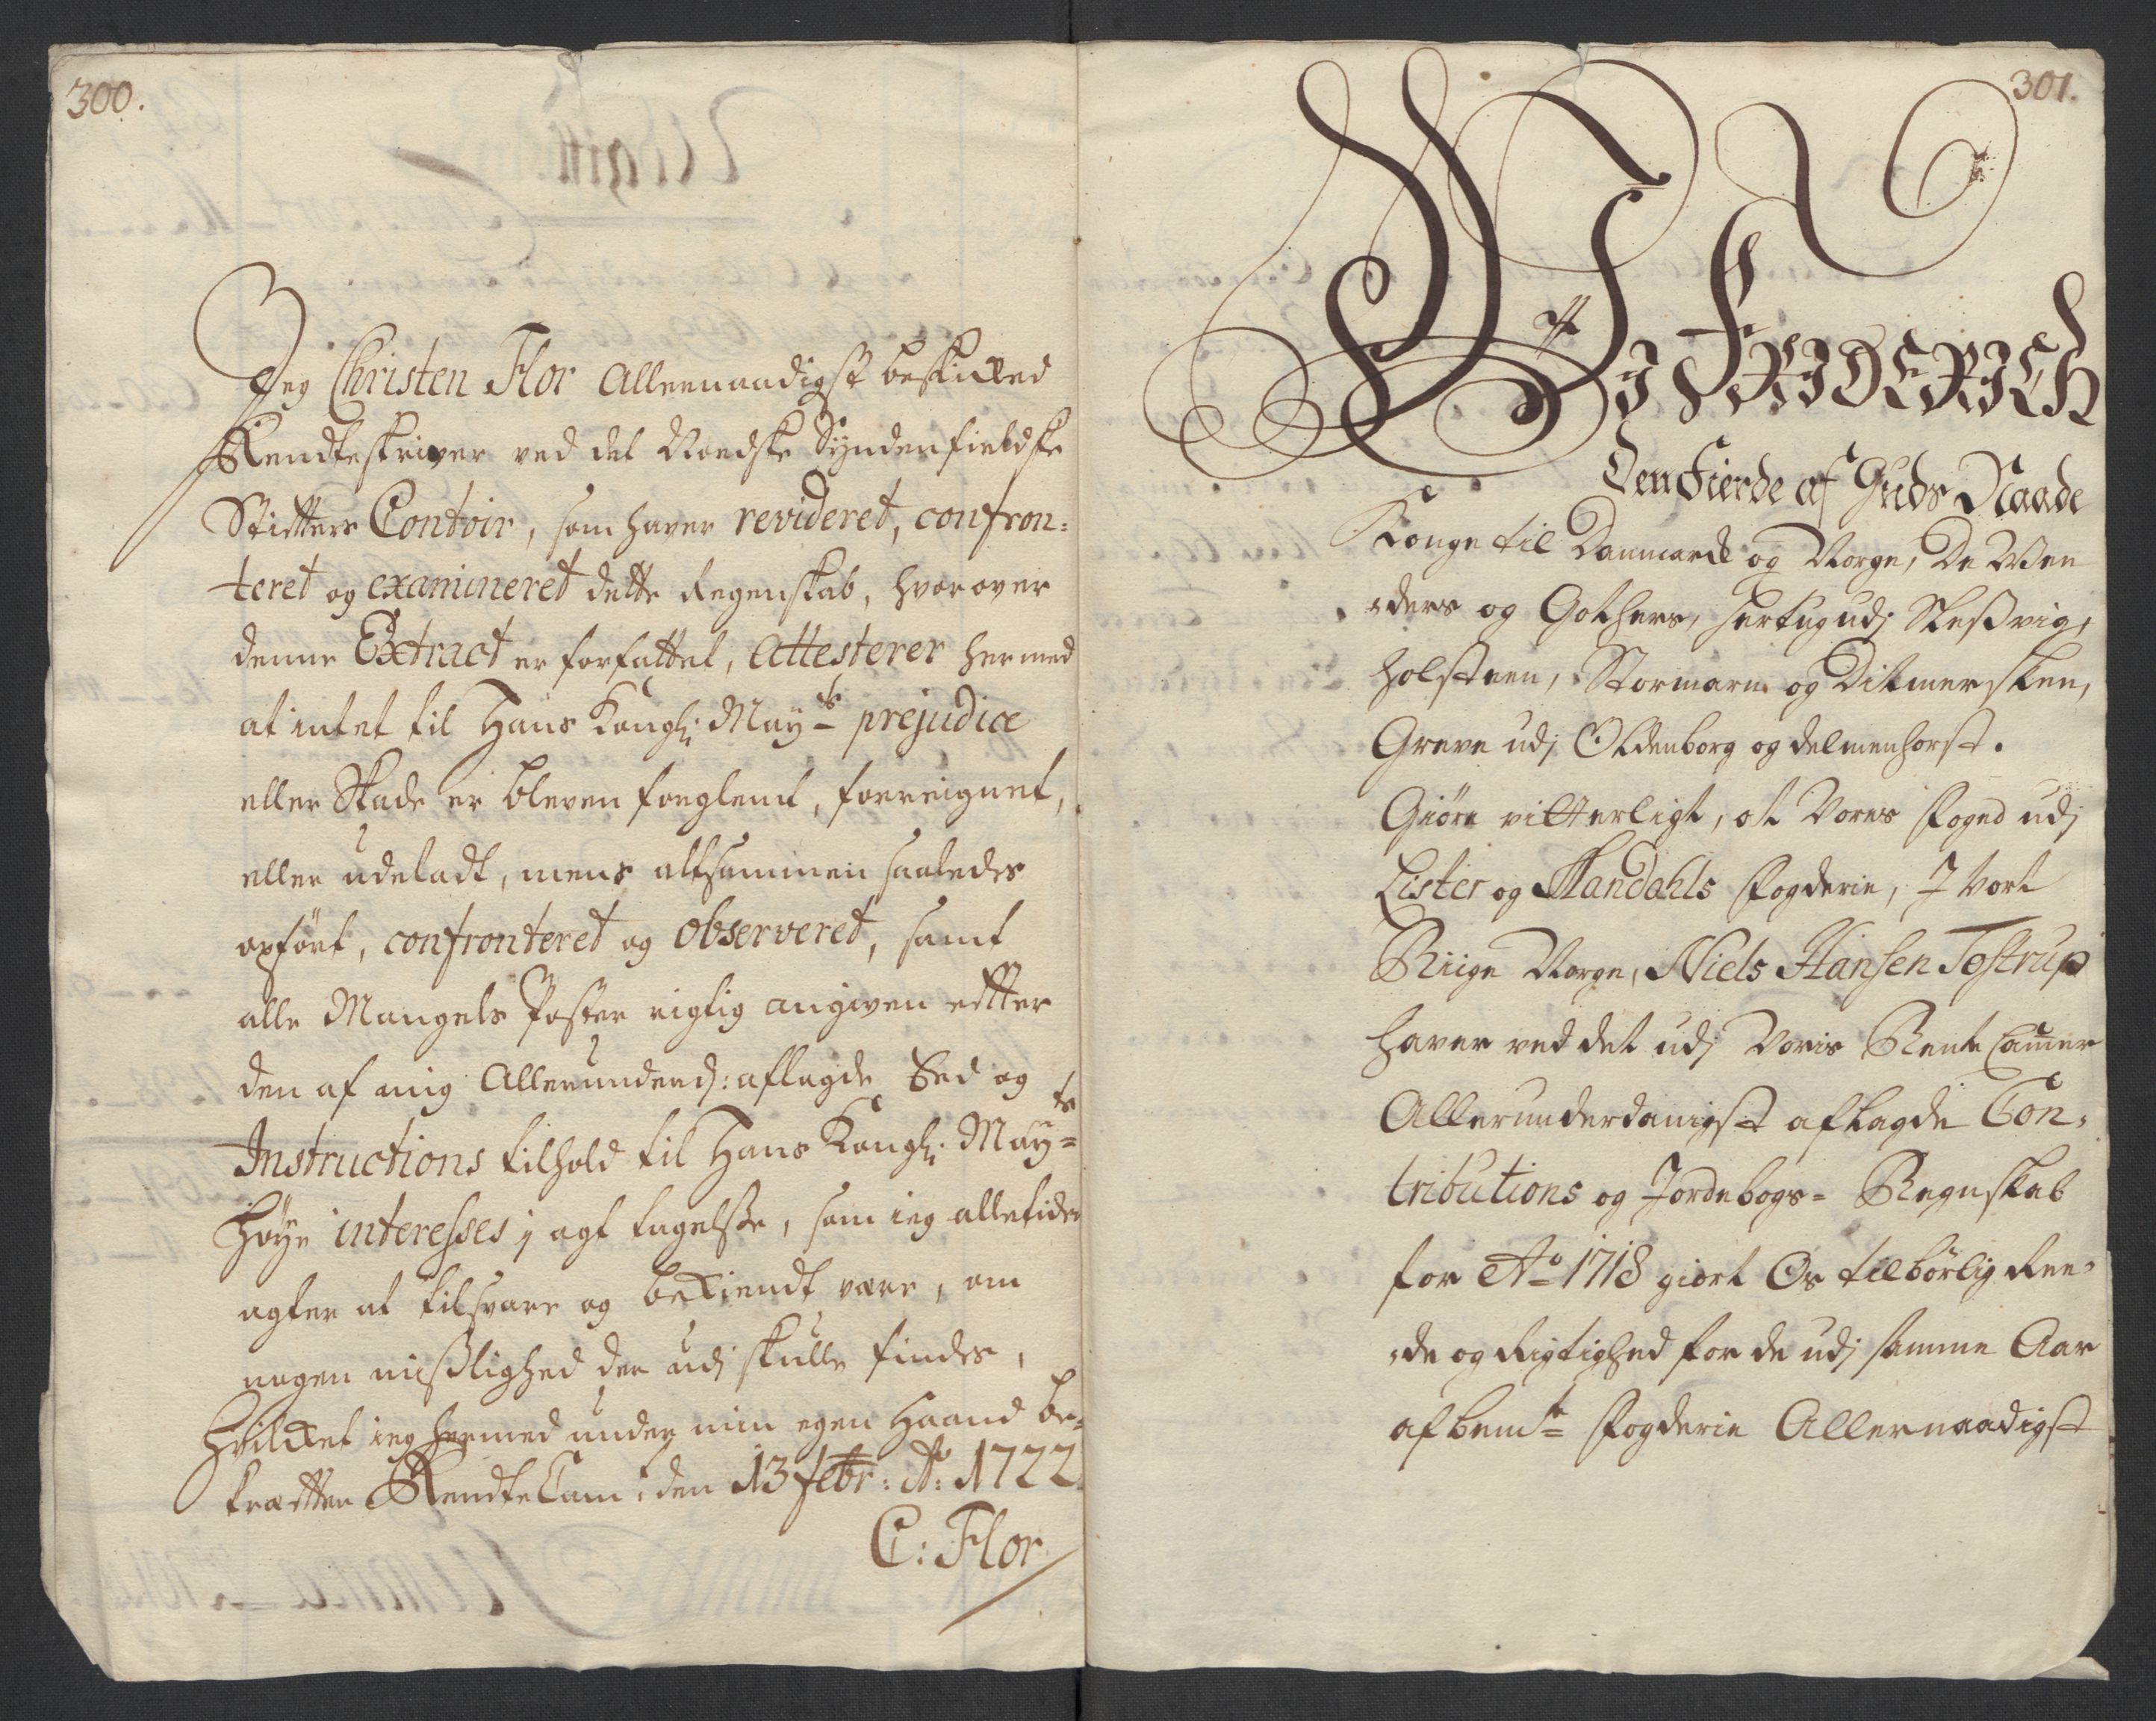 300.
Jeg Christen Flor Allernaadigst beskicked
Rendteskriver ved det Nordske Syndenfieldske
Stifters Contoir, som haver revideret, confron=
teret og examineret dette Regenskab, hvorover
denne Extract er forfattet, Attesterer hermed
at intet til Hans Kongl: Mayts prejudice
eller Skade er bleven forglemt, forreignet,
eller udeladt, mens altsammen saaledes
opført, confronteret og observeret, samt
alle Mangels Poster rigtig angiven efter
den af mig Allerunderd: aflagde Eed og
Instructions tilhold til Hans Kongl: Mayts
høye interesses i agt tagelse, som ieg alletider
agter at tilsvare og bekiendt være, om
nogen misslighed der udi skulle findes,
hvilcket ieg hermed under min egen Haand be=
kræfter RendteCam: den 13 febr: Ao: 1722
C: Flor
301.
WJ FRIDERICH
Den Fierde af Guds Naade
Konge til Danmarck og Norge, De Wen
=ders og Gothers, Hertug udj Slesvig,
Holsteen, Stormarn og Ditmersken,
Greve udj Oldenborg og delmenhorst.
Giøre vitterligt, at Vores Foged udj
Lister og Mandahls Fogderie, J Vort
Riige Norge, Niels Hansen Testrup
haver ved det udj Voris Rente Cammer
Allerunderdanigst aflagde Con=
tributions og Jordebogs= Regnskab
for Ao 1718 giort Os tilbørlig Ree=
=de og Rigtighed for de udj samme Aar
af bemte Fogderie Allernaadigst